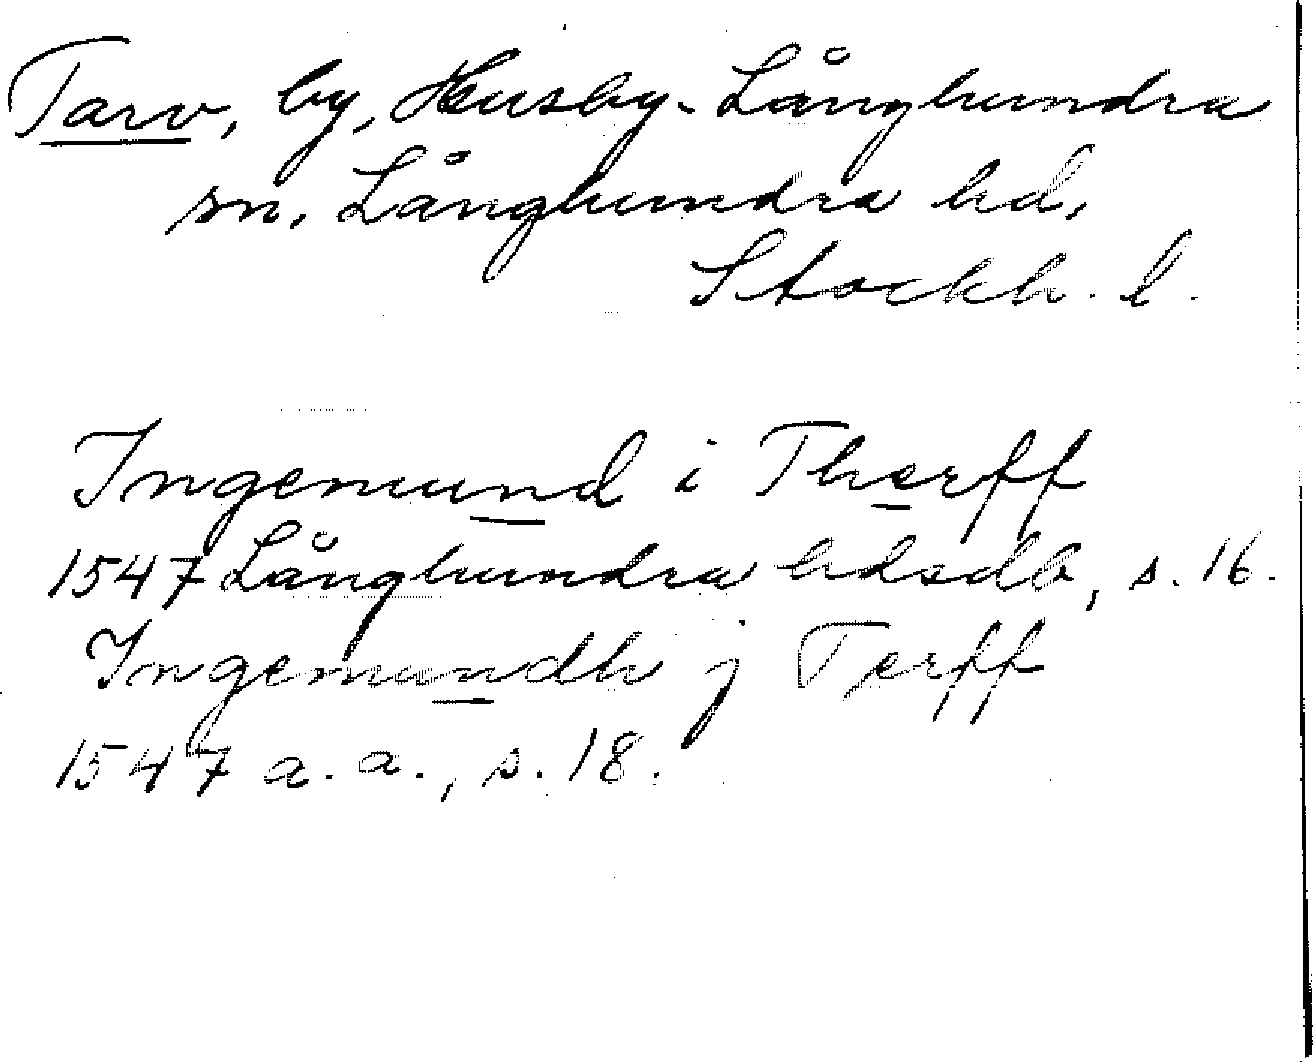 Tarv, by, Husby-Långhundra
sn, Långhundra hd,
Stockh. l.
Ingemund i Therff
1547 Långhundra hdsdb, s. 16.
Ingemundh j Terff
1547 a. a., s. 18.